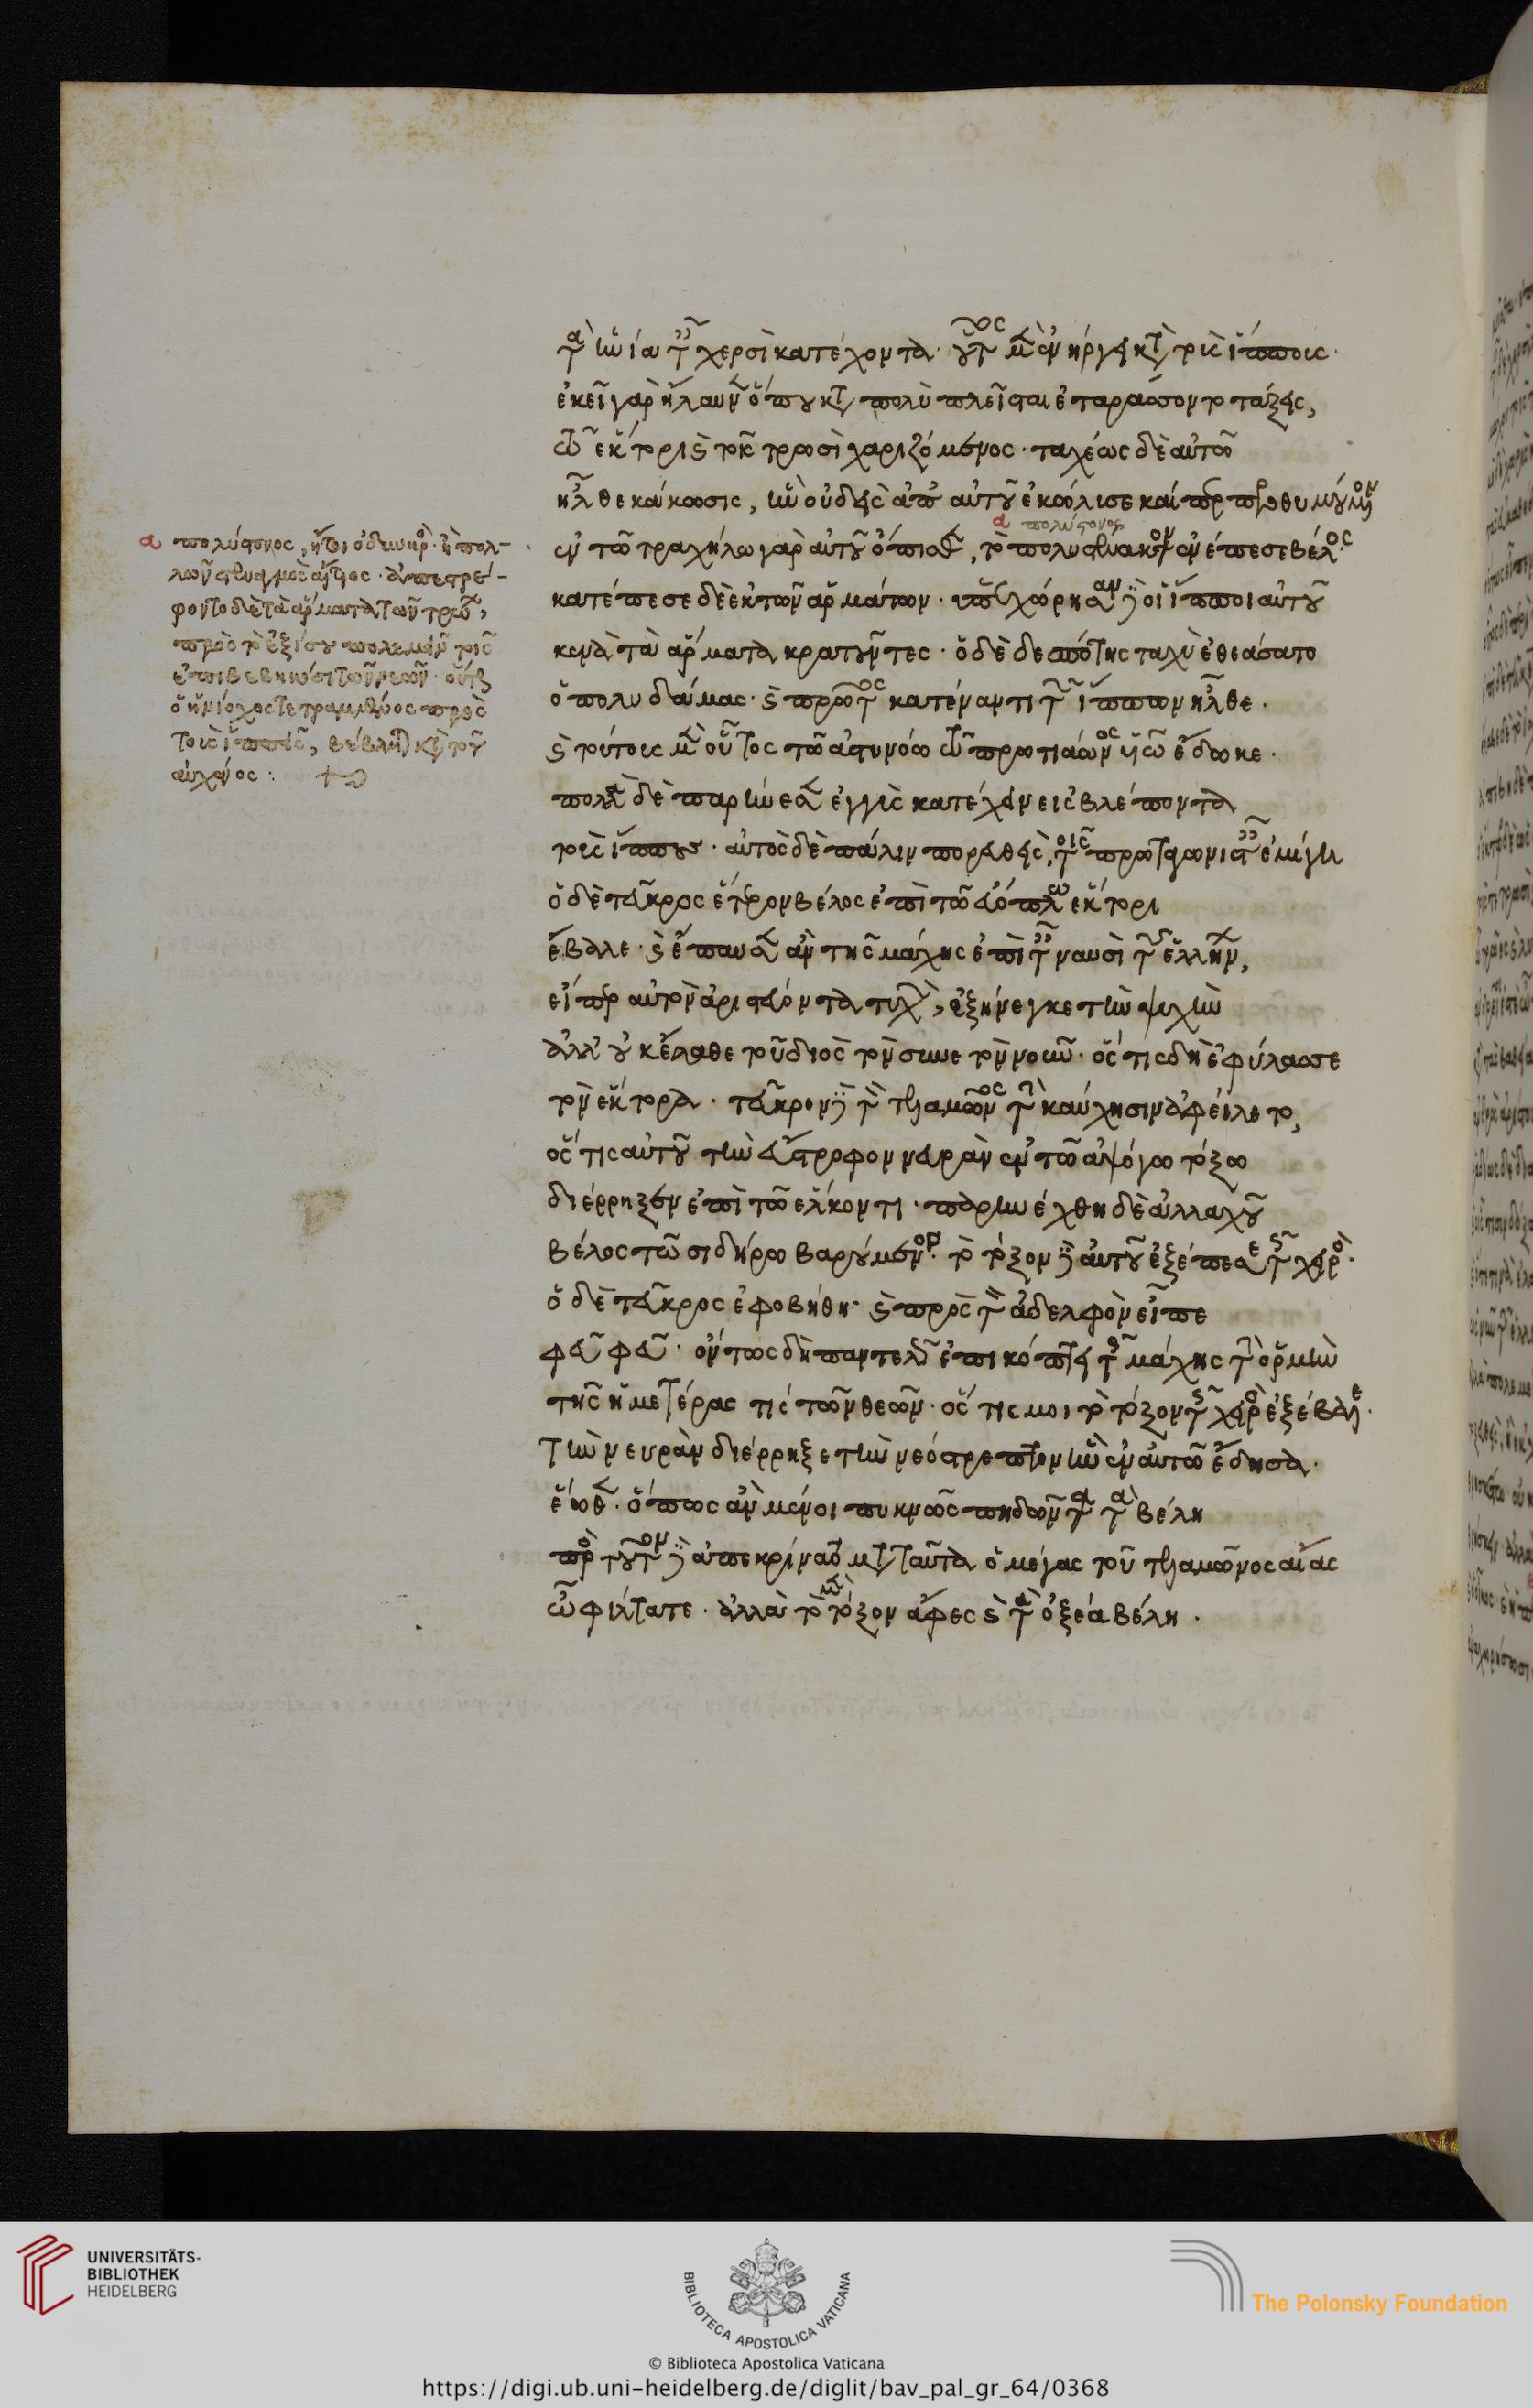 τὰ ἡνία ταῖς χερσὶ κατέχοντα. οὗτος μὲν ἐνήργει κατὰ τοὺς ἵππους.
ἐκεῖ γὰρ ἤλαυνεν ὅπου κατὰ πολὺ πλεῖσται ἐταράσσοντο τάξεις,
τῷ ἕκτορι καὶ τοῖς τρωσὶ χαριζόμενος. ταχέως δὲ αὐτῷ
ἦλθε κάκωσις, ἣν οὐδεὶς ἀπ' αὐτοῦ ἐκώλυσε καίπερ προθυμούμενον
ἐν τῷ τραχήλῳ γὰρ αὐτοῦ ὄπισθεν, τὸ πολυστένακτον ἐνέπεσε βέλος.
πολύστονος
κατέπεσε δὲ ἐκ τῶν ἁρμάτων. ὑπεχώρησαν δὲ οἱ ἵπποι αὐτοῦ
κενὰ τὰ ἅρματα κρατοῦντες. ὁ δὲ δεσπότης ταχὺ ἐθεάσατο
ὁ πολυδάμας. καὶ πρῶτος κατέναντι τῶν ἵππων ἦλθε.
καὶ τούτους μὲν οὗτος τῷ ἀστυνόῳ τῷ προτιάωνος υἱῷ ἔδωκε.
πολλὰ δὲ παρῄνεσεν ἐγγὺς κατέχειν εἰσβλέποντα
τοὺς ἵππους. αὐτὸς δὲ πάλιν πορευθεὶς, τοῖς πρωταγωνισταῖς ἐμίγη
ὁ δὲ τεῦκρος ἕτερον βέλος ἐπὶ τῷ εὐόπλῳ ἕκτορι
ἔβαλε. καὶ ἔπαυσεν ἂν τῆς μάχης ἐπὶ ταῖς ναυσὶ τῶν ἑλλήνων,
εἴπερ αὐτὸν ἀριστεύοντα τυχὼν, ἐξήνεγκε τὴν ψυχὴν
ἀλλ' οὐκ ἔλαθε τοῦ διὸς τὸν συνετὸν νοῦν. ὅστις δὴ ἐφύλασσε
τὸν ἕκτορα. τεῦκρον δὲ τὸν τελαμῶνος τὴν καύχησιν ἀφείλετο,
ὅστις αὐτοῦ τὴν εὔστροφον νευρὰν ἐν τῷ ἀψόγῳ τόξῳ
διέρρηξεν ἐπὶ τῷ ἕλκοντι. παρηνέχθη δὲ ἀλλαχοῦ
βέλος τῷ σιδήρῳ βαρούμενον. τὸ τόξον δὲ αὐτοῦ ἐξέπεσε τῆς χειρός.
ὁ δὲ τεῦκρος ἐφοβήθη. καὶ πρὸς τὸν ἀδελφὸν εἶπε
φεῦ φεῦ. ὄντως δὴ παντελῶς ἐπικόπτει τῆς μάχης τὴν ὁρμὴν
τῆς ἡμετέρας τὶς τῶν θεῶν. ὅστις μοι τὸ τόξον τῆς χειρὸς ἐξέβαλε.
τὴν νευρὰν διέρρηξε τὴν νεόστρεπτον ἣν ἐν αὐτῷ ἔδησα.
ἕωθεν. ὅπως ἂν μένοι πυκνῶς πηδῶντα τὰ βέλη
πρὸς τοῦτον δὲ ἀπεκρίνατο μετὰ ταῦτα ὁ μέγας τοῦ τελαμῶνος αἴας
ὦ φίλτατε. ἀλλὰ τὸ μὲν τόξον ἄφες καὶ τὰ ὀξέα βέλη.
α πολύστονος, ἤτοι ὀδυνηρός. ἢ πολ-
λῶν στεναγμὸς αἴτιος. ἀνεστρέ-
φοντο δὲ τὰ ἅρματα τῶν τρώων,
πρὸς τὸ ἐξίσου πολεμεῖν τοῖς
ἐπιβεβηκόσι τῶν νεῶν. οὕτως
ὁ ἡνίοχος τετραμμένος πρὸς
τοὺς ἵππους, βέβληται κατὰ τοῦ
αὐχένος:
UNIVERSITÄTS-
BIBLIOTHEK
HEIDELBERG
BIBLIOTECA APOSTOLICA VATICANA
The Polonsky Foundation
© Biblioteca Apostolica Vaticana
https://digi.ub.uni-heidelberg.de/diglit/bav_pal_gr_64/0368